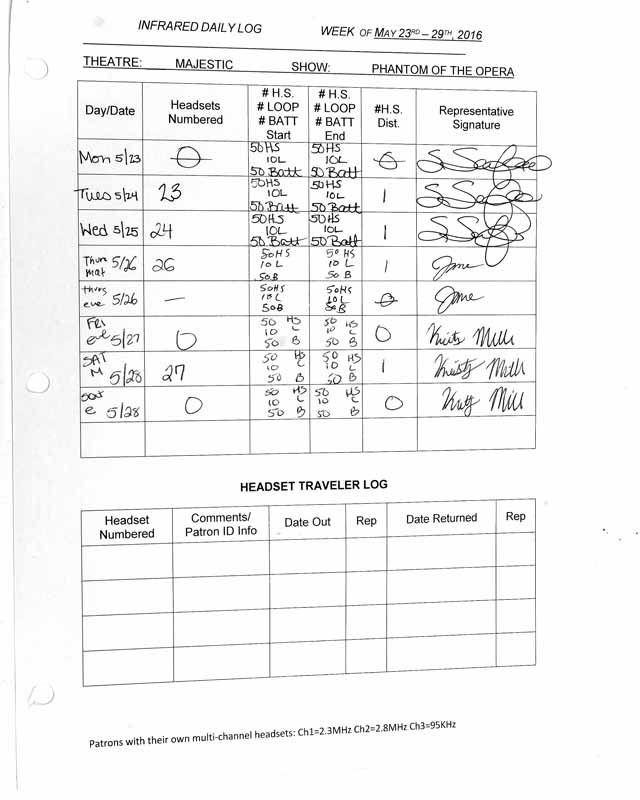 INFRARED DAILY LOG WEEK OF MAY 23RD – 29TH, 2016
THEATRE: MAJESTIC SHOW: PHANTOM OF THE OPERA
Day/Date Headsets Numbered # H.S. # LOOP # BATT Start # H.S. # LOOP # BATT End #H.S. Dist. Representative Signature
Mon 5/23 0 50HS 10L 50 Batt 50HS 10L 50 Batt 0
Tues 5/24 23 50HS 10L 50 Batt 50HS 10L 50 Batt 1
Wed 5/25 24 50HS 10L 50 Batt 50HS 10L 50 Batt 1
Thurs mat 5/26 26 50HS 10L 50B 50HS 10L 50B 1
thurs eve 5/26 — 50HS 10L 50B 50HS 10L 50B 0
FRI eve 5/27 0 50 HS 10 L 50 B 50 HS 10 L 50 B 0
SAT M 5/28 27 50 HS 10 L 50 B 50 HS 10 L 50 B 1
sat e 5/28 0 50 HS 10 L 50 B 50 HS 10 L 50 B 0
HEADSET TRAVELER LOG
Headset Numbered Comments/ Patron ID Info Date Out Rep Date Returned Rep
Patrons with their own multi-channel headsets: Ch1=2.3MHz Ch2=2.8MHz Ch3=95KHz